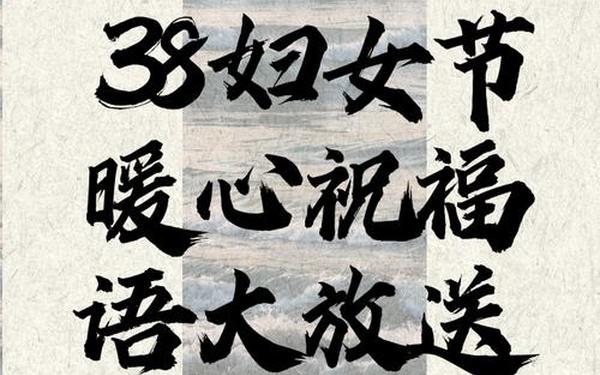 38妇女节
暖心祝福
语大放送